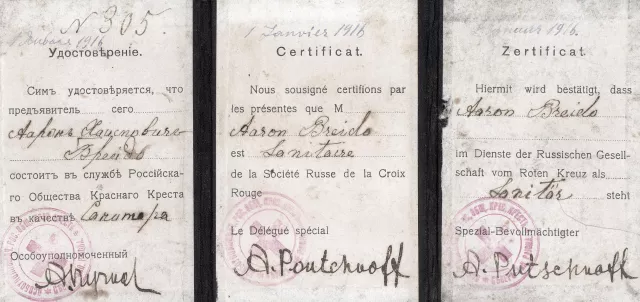 N 305.
1 Января 1916
Удостовѣреніе.
Симъ удостовѣряется, что
предъявитель сего
Ааронъ
Брейдо
состоитъ въ службѣ Россійска-
го Общества Краснаго Креста
въ качествѣ Санитара
Особоуполномоченный
1 Janvier 1916
Certificat.
Nous sousigné certifions par
les présentes que M
Aaron Breido
est Sanitaire
de la Société Russe de la Croix
Rouge
Le Délégué spécial
A. Poutchnoff
1916.
Zertificat.
Hiermit wird bestätigt, dass
Aaron Breido
im Dienste der Russischen Gesell-
schaft vom Roten Kreuz als
Sanitär steht
Spezial-Bevollmächtigter